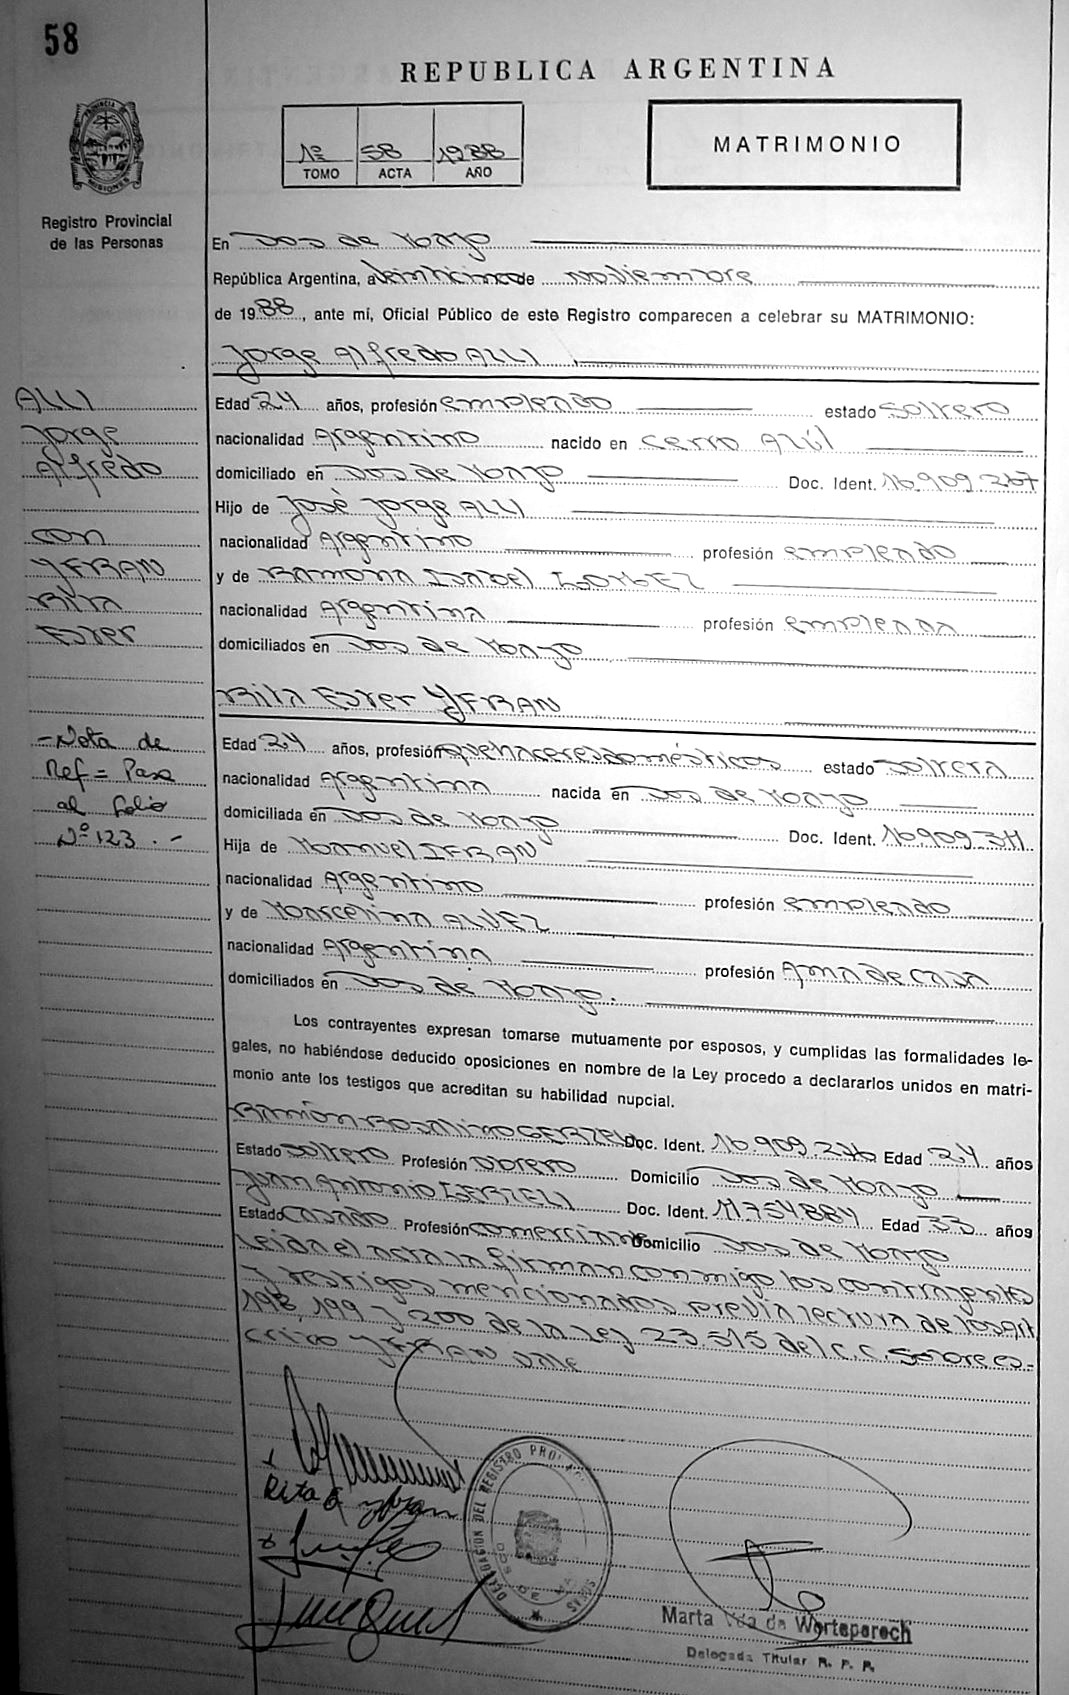 58
REPUBLICA ARGENTINA
PROVINCIA
MISIONES
1º 58 1988
TOMO ACTA AÑO
MATRIMONIO
Registro Provincial
de las Personas
En Dos de Mayo
República Argentina, a Veinticinco de Noviembre
de 1988, ante mí, Oficial Público de este Registro comparecen a celebrar su MATRIMONIO:
Jorge Alfredo ALLI
ALLI
Jorge
Alfredo
con
YFRAN
Rita
Ester
Edad 24 años, profesión empleado estado soltero
nacionalidad Argentino nacido en Cerro Azúl
domiciliado en Dos de Mayo Doc. Ident. 16.909.267
Hijo de José Jorge ALLI
nacionalidad Argentino profesión empleado
y de RAMONA ISABEL
nacionalidad Argentina profesión empleada
domiciliados en Dos de Mayo
Rita Ester YFRAN
-Nota de
Ref = Pase
al folio
Nº 123.-
Edad 24 años, profesión quehaceres domésticos estado soltera
nacionalidad Argentina nacida en Dos de Mayo
domiciliada en Dos de Mayo Doc. Ident. 16.909.311
Hija de Manuel IFRAN
nacionalidad Argentino profesión empleado
y de Marcelina ALVEZ
nacionalidad Argentina profesión Ama de casa
domiciliados en Dos de Mayo.
Los contrayentes expresan tomarse mutuamente por esposos, y cumplidas las formalidades le-
gales, no habiéndose deducido oposiciones en nombre de la Ley procedo a declararlos unidos en matri-
monio ante los testigos que acreditan su habilidad nupcial.
RAMÓN Doc. Ident. 16.909.276 Edad 24 años
Estado soltero Profesión obrero Domicilio Dos de Mayo
Juan Antonio Doc. Ident. 11.754884 Edad 33 años
Estado casado Profesión comerciante Domicilio Dos de Mayo
Leida el acta la firman conmigo los contrayentes
y testigos mencionados previa lectura de los Art
198, 199 y 200 de la Ley 23.515 del C.C. Sobre es-
crito YFRAN vale
Rita E Yfran
DELEGACION DEL REGISTRO PROV
DOS DE MA
Marta Vda de Worteparech
Delegada Titular R. P. P.